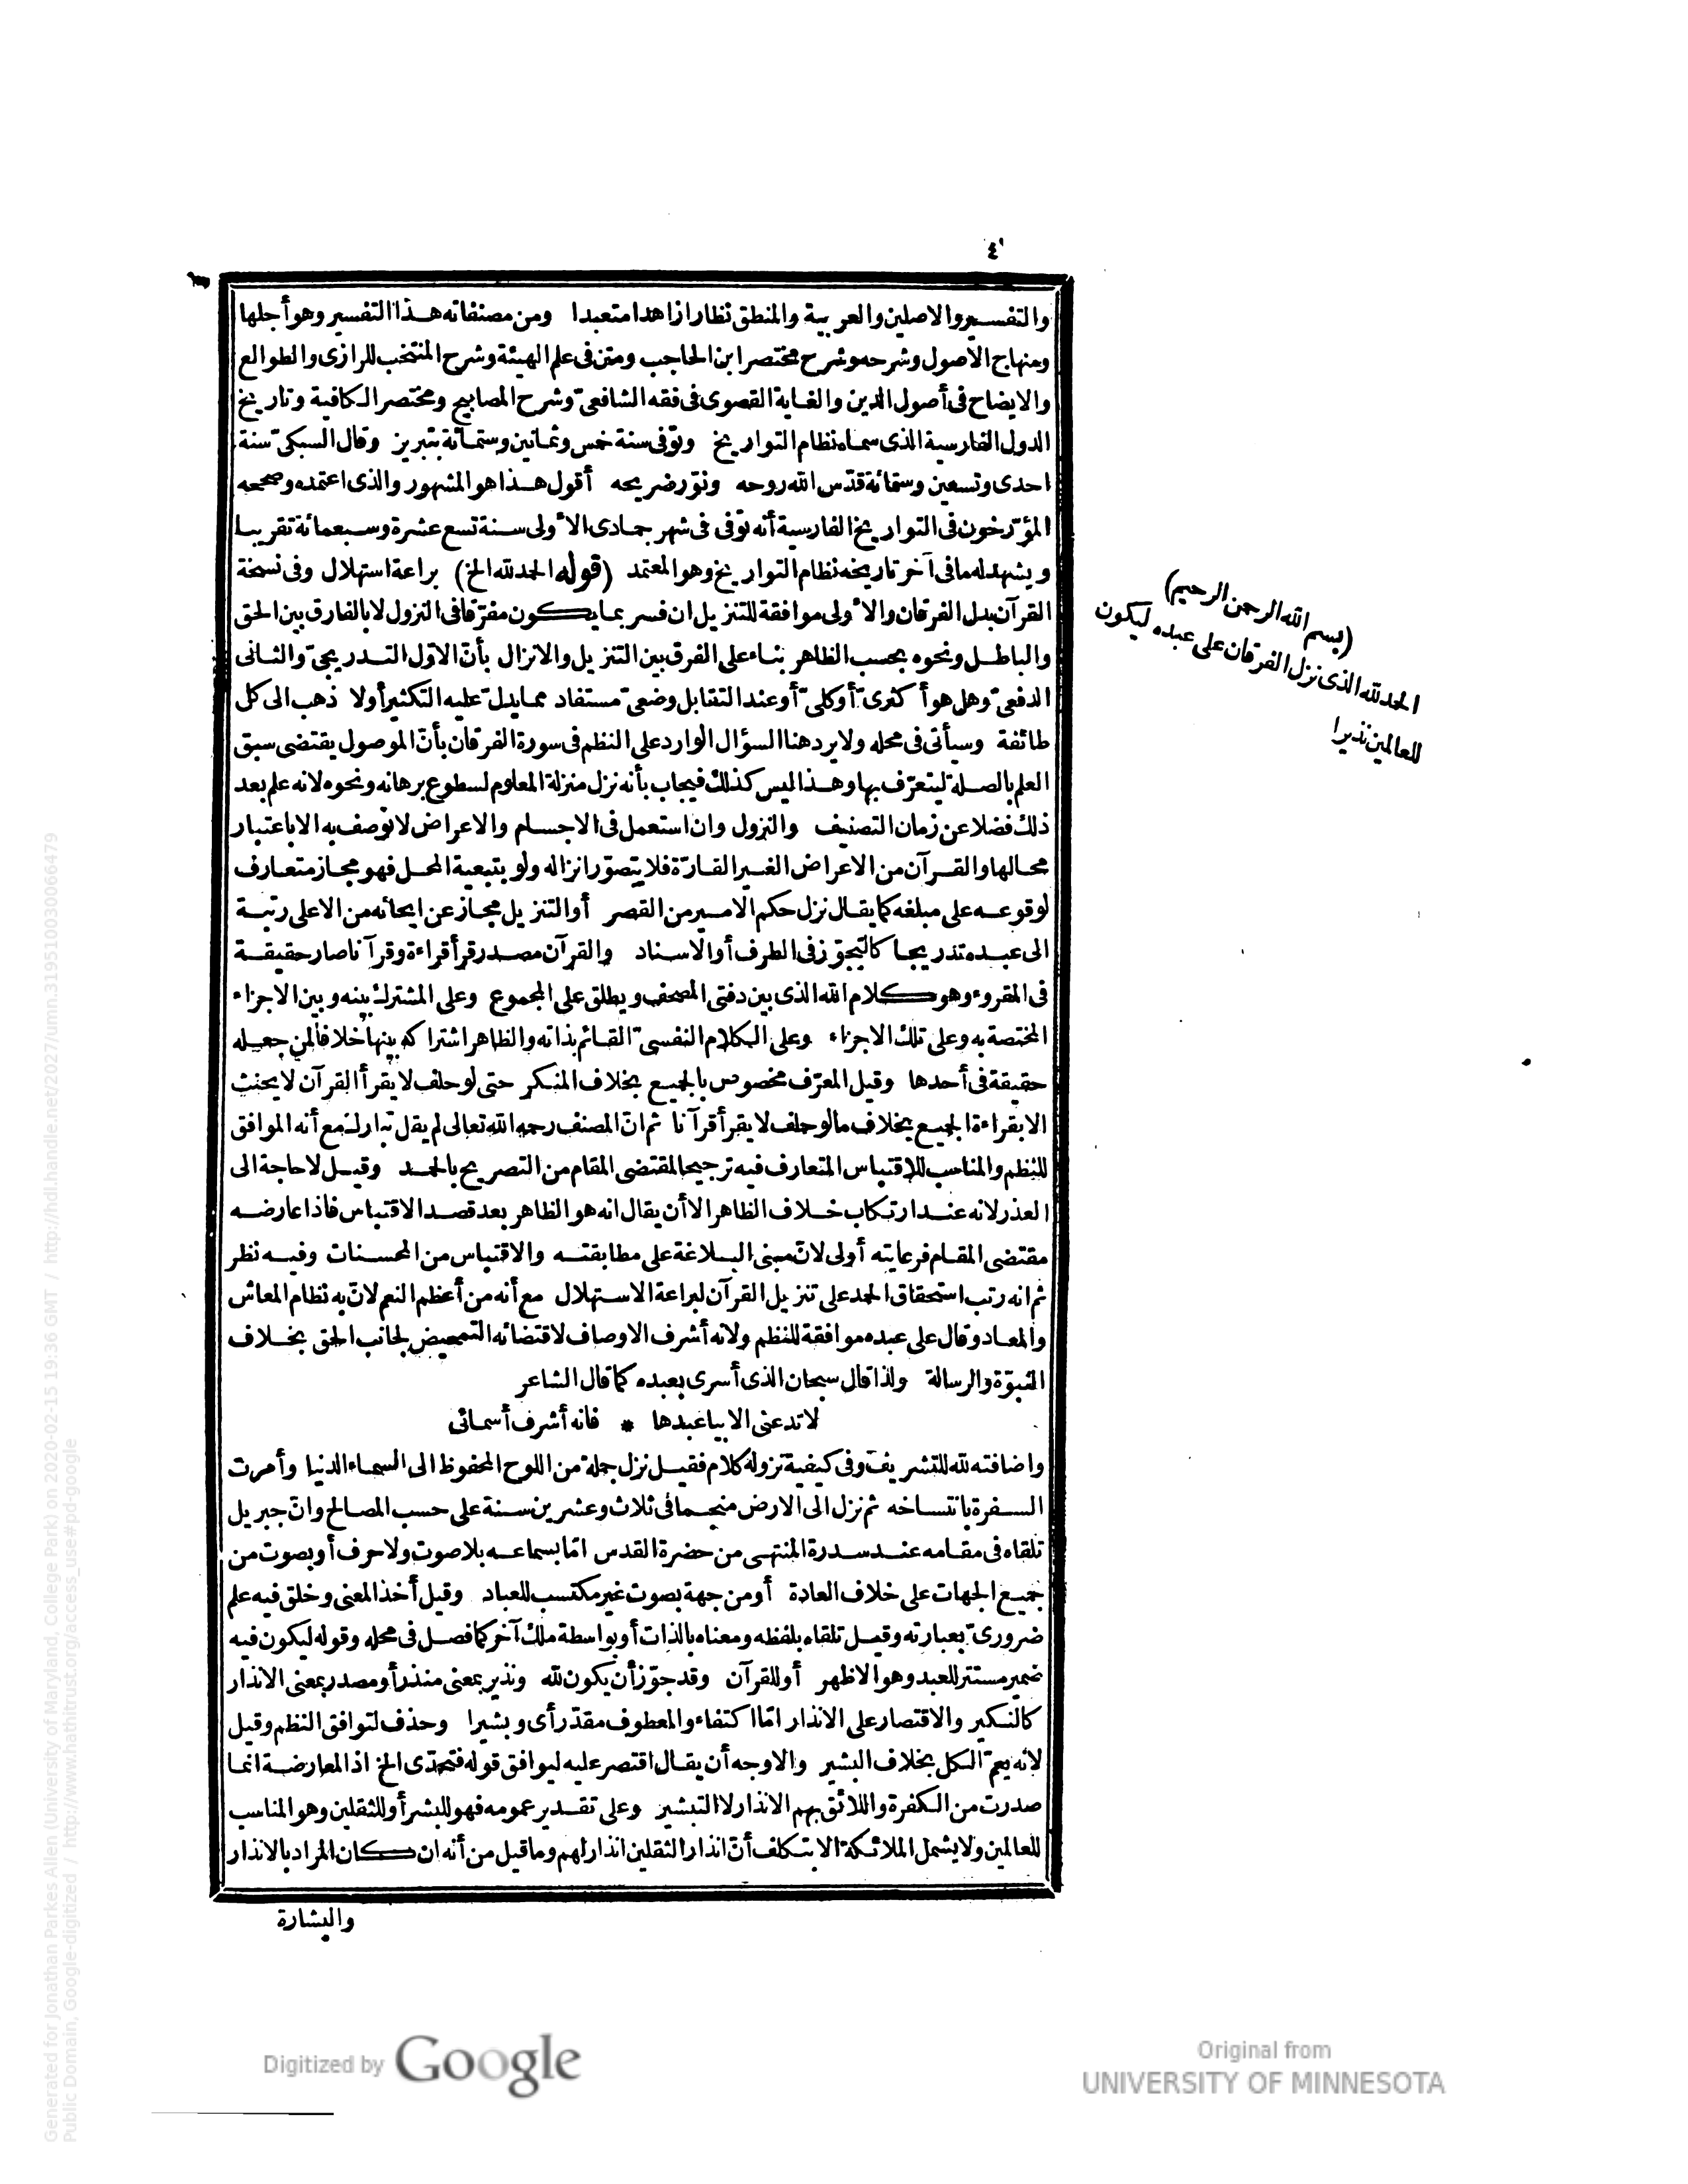 ٤
والتفسير والاصلين والعربية والمنطق نظارا زاهدا متعبدا ومن مصنفاته هذا التفسير وهو أجلها
ومنهاج الاصول وشرحه وشرح مختصر ابن الحاجب ومتن فى علم الهيئة وشرح المنتخب للرازى والطوالع
والايضاح فى أصول الدين والغاية القصوى فى فقه الشافعىّ وشرح المصابيح ومختصر الكافية وتاريخ
الدول الفارسية الذى سماه نظام التواريخ وتوفى سنة خمس وثمانين وستمائة بتبريز وقال السبكىّ سنة
احدى وتسعين وستمائة قدّس الله روحه ونوّر ضريحه أقول هذا هو المشهور والذى اعتمده وصححه
المؤرّخون فى التواريخ الفارسية أنه توفى فى شهر جمادى الاولى سنة تسع عشرة وسبعمائة تقريبا
ويشهد له ما فى آخر تاريخه نظام التواريخ وهو المعتمد (قوله الحمد لله الخ) براعة استهلال وفى نسخة
القرآن بدل الفرقان والاولى موافقة للتنزيل ان فسر بما يكون مفرّقا فى النزول لا بالفارق بين الحق
والباطل ونحوه بحسب الظاهر بناء على الفرق بين التنزيل والانزال بأنّ الاوّل التدريجىّ والثانى
الدفعىّ وهل هو أكثرىّ أو كلىّ أو عند التقابل وضعىّ مستفاد مما يدلّ عليه التكثير أولا ذهب الى كل
طائفة وسيأتى فى محله ولا يرد هنا السؤال الوارد على النظم فى سورة الفرقان بأنّ الموصول يقتضى سبق
العلم بالصلة ليتعرّف بها وهذا ليس كذلك فيجاب بأنه نزل منزلة المعلوم لسطوع برهانه ونحوه لانه علم بعد
ذلك فضلا عن زمان التصنيف والنزول وان استعمل فى الاجسام والاعراض لا توصف به الا باعتبار
محالها والقرآن من الاعراض الغير القارّة فلا يتصوّر انزاله ولو بتبعية المحل فهو مجاز متعارف
لوقوعه على مبلغه كما يقال نزل حكم الامير من القصر أو التنزيل مجاز عن ايحائه من الاعلى رتبة
الى عبده تدريجا كالتجوّز فى الطرف أو الاسناد والقرآن مصدر قرأ قراءة وقرآنا صار حقيقة
فى المقروء وهو كلام الله الذى بين دفتى المصحف ويطلق على المجموع وعلى المشترك بينه وبين الاجزاء
المختصة به وعلى تلك الاجزاء وعلى الكلام النفسىّ القائم بذاته والظاهر اشتراكه بينها خلافا لمن جعله
حقيقة فى أحدها وقيل المعرّف مخصوص بالجميع بخلاف المنكر حتى لو حلف لا يقرأ القرآن لا يحنث
الا بقراءة الجميع بخلاف ما لو حلف لا يقرأ قرآنا ثم انّ المصنف رحمه الله تعالى لم يقل تبارك مع أنه الموافق
للنظم والمناسب للاقتباس المتعارف فيه ترجيحا لمقتضى المقام من التصريح بالحمد وقيل لا حاجة الى
العذر لانه عند ارتكاب خلاف الظاهر الا أن يقال انه هو الظاهر بعد قصد الاقتباس فاذا عارضه
مقتضى المقام فرعايته أولى لانّ مبنى البلاغة على مطابقته والاقتباس من المحسنات وفيه نظر
ثم انه رتب استحقاق الحمد على تنزيل القرآن لبراعة الاستهلال مع أنه من أعظم النعم لانّ به نظام المعاش
والمعاد وقال على عبده موافقة للنظم ولانه أشرف الاوصاف لاقتضائه التمحيض لجانب الحق بخلاف
النبوّة والرسالة ولذا قال سبحان الذى أسرى بعبده كما قال الشاعر
لا تدعنى الا بيا عبدها * فانه أشرف أسمائى
واضافته لله للتشريف وفى كيفية نزوله كلام فقيل نزل جملة من اللوح المحفوظ الى السماء الدنيا وأمرت
السفرة بانتساخه ثم نزل الى الارض منجما فى ثلاث وعشرين سنة على حسب المصالح وانّ جبريل
تلقاه فى مقامه عند سدرة المنتهى من حضرة القدس امّا بسماعه بلا صوت ولا حرف أو بصوت من
جميع الجهات على خلاف العادة أو من جهة بصوت غير مكتسب للعباد وقيل أخذ المعنى وخلق فيه علم
ضرورىّ بعبارته وقيل تلقاه بلفظه ومعناه بالذات أو بواسطة ملك آخر كما فصل فى محله وقوله ليكون فيه
ضمير مستتر للعبد وهو الاظهر أو للقرآن وقد جوّز أن يكون لله ونذير بمعنى منذر أو مصدر بمعنى الانذار
كالنكير والاقتصار على الانذار امّا اكتفاء والمعطوف مقدّر أى وبشيرا وحذف لتوافق النظم وقيل
لانه يعمّ الكل بخلاف البشير والاوجه أن يقال اقتصر عليه ليوافق قوله فتحدّى الخ اذ المعارضة انما
صدرت من الكفرة واللائق بهم الانذار لا التبشير وعلى تقدير عمومه فهو للبشر أو للثقلين وهو المناسب
للعالمين ولا يشمل الملائكة الا بتكلف أنّ انذار الثقلين انذار لهم وما قيل من أنه ان كان المراد بالانذار
والبشارة
(بسم الله الرحمن الرحيم)
الحمد لله الذى نزل الفرقان على عبده ليكون
للعالمين نذيرا
Digitized by Google
Original from
UNIVERSITY OF MINNESOTA
Generated for Jonathan Parkes Allen (University of Maryland, College Park) on 2020-02-15 19:36 GMT / http://hdl.handle.net/2027/umn.319510030066479
Public Domain, Google-digitized / http://www.hathitrust.org/access_use#pd-google